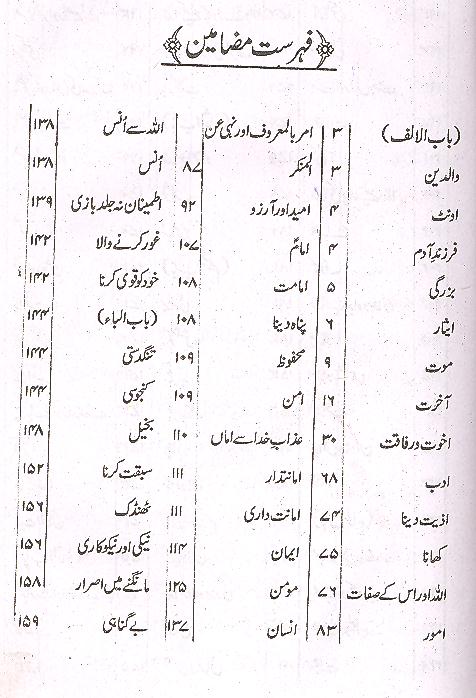 فہرست مضامین
(باب الالف) ۳
والدین ۳
اونٹ ۴
فرزندِ آدم ۴
بزرگی ۵
ایثار ۶
موت ۹
آخرت ۱۶
اخوت و رفاقت ۳۰
ادب ۶۸
اذیت دینا ۷۴
کھانا ۷۵
اللہ اور اس کے صفات ۷۶
امور ۸۳
امر بالمعروف اور نہی عن
المنکر ۸۷
امید اور آرزو ۹۲
امام ۱۰۷
امامت ۱۰۸
پناہ دینا ۱۰۸
محفوظ ۱۰۹
امن ۱۰۹
عذابِ خدا سے اماں ۱۱۰
امانتدار ۱۱۱
امانت داری ۱۱۱
ایمان ۱۱۴
مومن ۱۲۵
انسان ۱۳۷
اللہ سے اُنس ۱۳۸
اُنس ۱۳۸
اطمینان نہ جلد بازی ۱۳۹
غور کرنے والا ۱۴۲
خود کو قوی کرنا ۱۴۲
(باب الباء) ۱۴۴
تنگدستی ۱۴۴
کنجوسی ۱۴۴
بخیل ۱۴۸
سبقت کرنا ۱۵۲
ٹھنڈک ۱۵۶
نیکی اور نیکوکاری ۱۵۶
مانگنے میں اصرار ۱۵۸
بے گناہی ۱۵۹